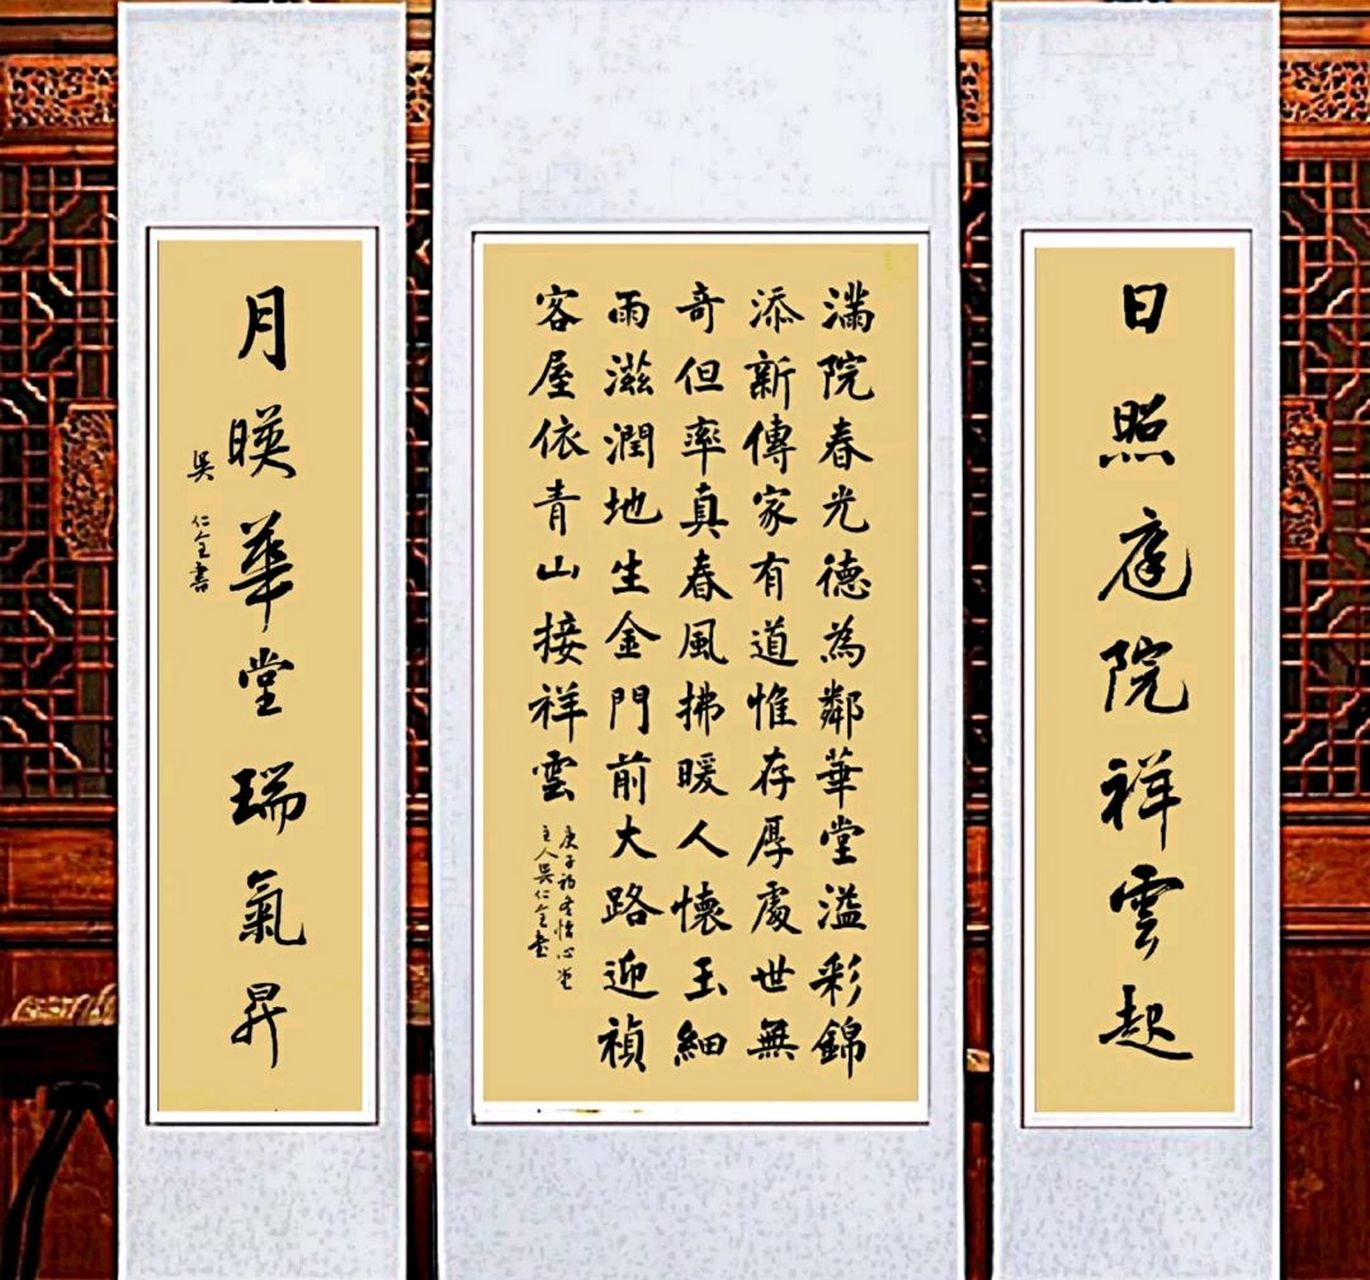 日照庭院祥雲起
滿院春光德為鄰華堂溢彩錦
添新傳家有道惟存厚處世無
奇但率真春風拂暖人懷玉細
雨滋潤地生金門前大路迎禎
客屋依青山接祥雲
庚子初冬怡心堂
主人吳仁全書
月暎華堂瑞氣昇
吳仁全書